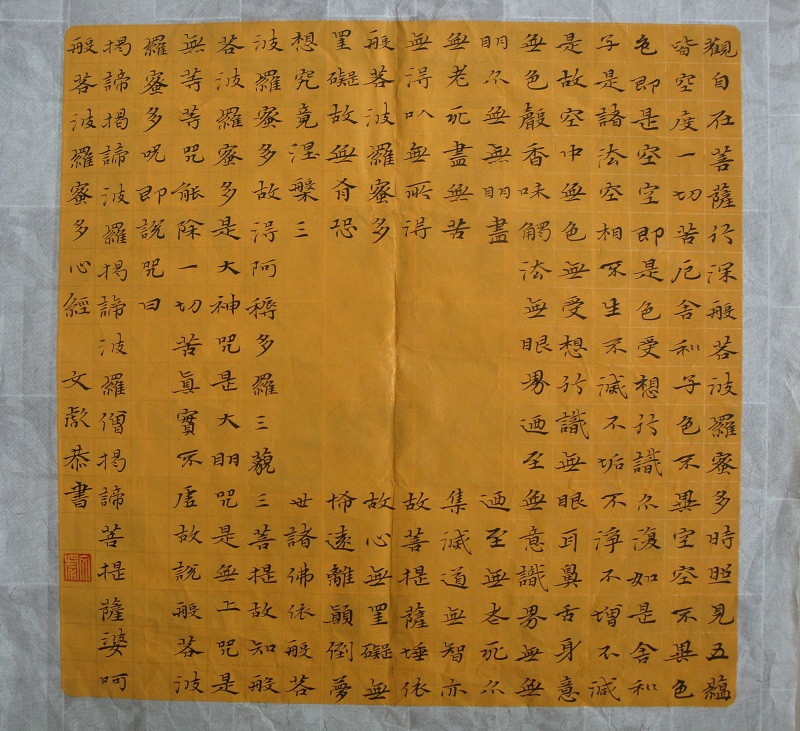 觀自在菩薩行深般若波羅蜜多時照見五蘊
皆空度一切苦厄舍利子色不異空空不異色
色即是空空即是色受想行識亦復如是舍利
子是諸法空相不生不滅不垢不淨不增不減
是故空中無色無受想行識無眼耳鼻舌身意
無色聲香味觸法無眼界迺至無意識界無無
明亦無無明盡 迺至無老死亦
無老死盡無苦 集滅道無智亦
無得以無所得 故菩提薩埵依
般若波羅蜜多 故心無罣礙無
罣礙故無有恐 怖遠離顛倒夢
想究竟涅槃三 世諸佛依般若
波羅蜜多故得阿耨多羅三藐三菩提故知般
若波羅蜜多是大神咒是大明咒是無上咒是
無等等咒能除一切苦眞實不虛故說般若波
羅蜜多呪即說咒曰
揭諦揭諦波羅揭諦波羅僧揭諦菩提薩婆呵
般若波羅蜜多心經 文獻恭書